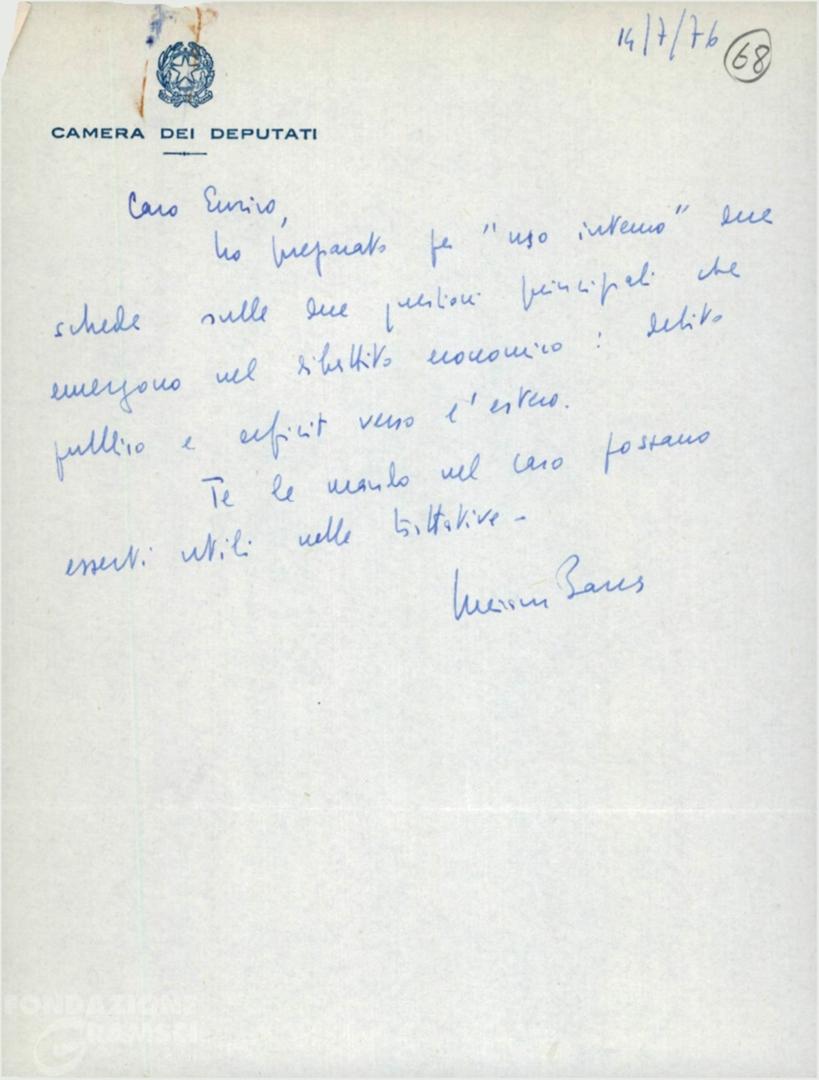 14/7/76
68
CAMERA DEI DEPUTATI
Caro Enrico,
ho preparato per "uso interno" due
schede sulle due questioni principali che
emergono nel dibattito economico: debito
pubblico e deficit verso l'estero.
Te le mando nel caso possano
esserti utili nelle trattative -
FONDAZIONE
GRAMSCI